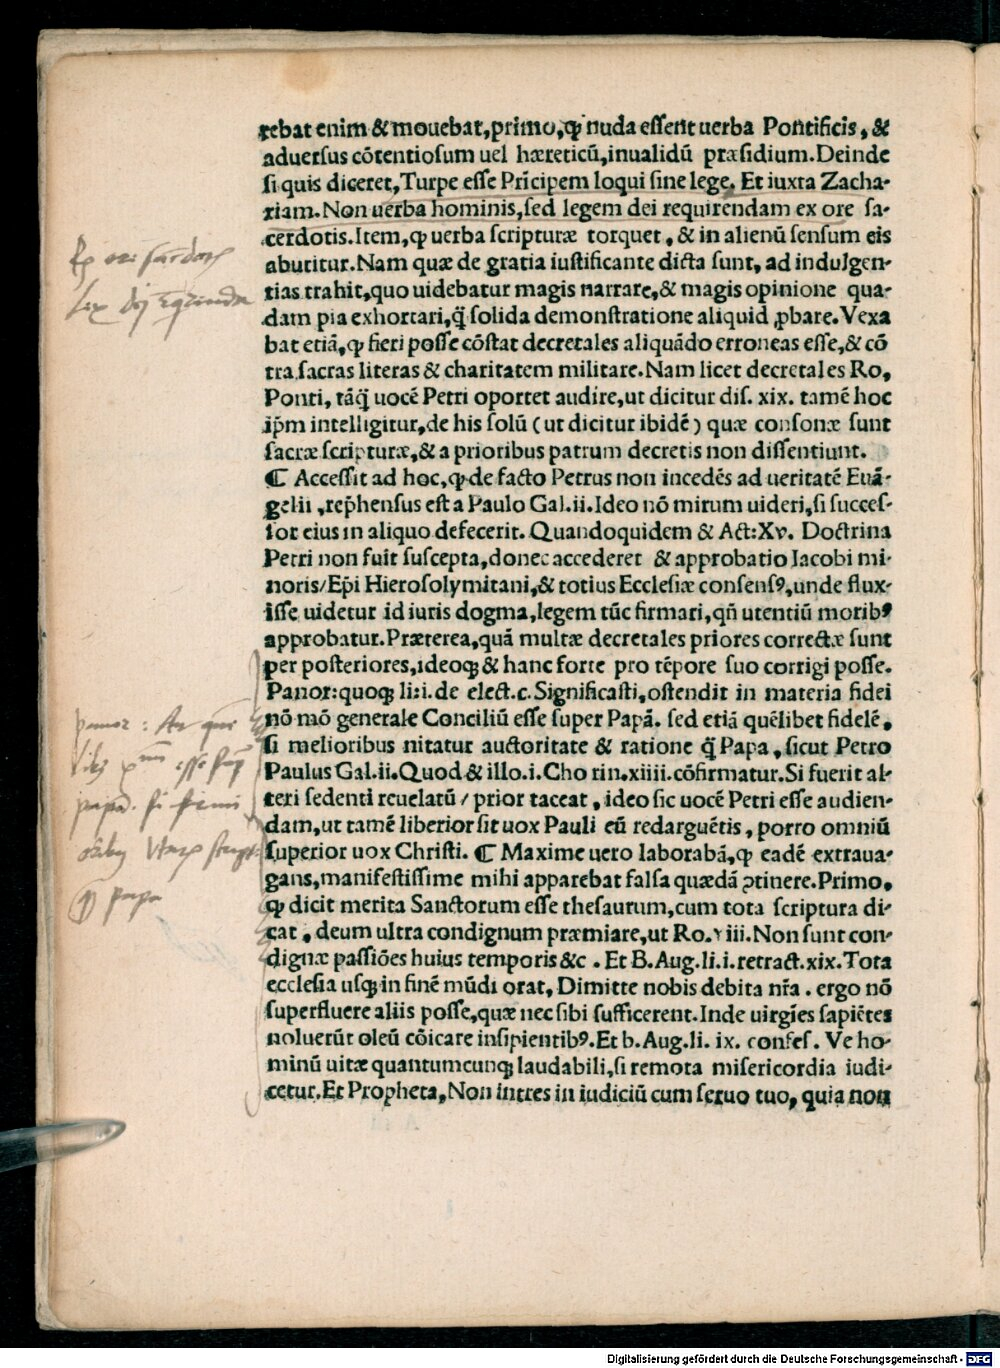 rebat enim & mouebat, primo, ꝙ nuda essent uerba Pontificis, &
aduersus cõtentiosum uel hæreticũ, inualidũ præsidium. Deinde
si quis diceret, Turpe esse Prĩcipem loqui sine lege. Et iuxta Zacha-
riam. Non uerba hominis, sed legem dei requirendam ex ore sa-
cerdotis. Item, ꝙ uerba scripturæ torquet, & in alienũ sensum eis
abutitur. Nam quæ de gratia iustificante dicta sunt, ad indulgen-
tias trahit, quo uidebatur magis narrare, & magis opinione qua-
dam pia exhortari, q̃ solida demonstratione aliquid ꝓbare. Vexa
bat etiã, ꝙ fieri posse cõstat decretales aliquãdo erroneas esse, & cõ
tra sacras literas & charitatem militare. Nam licet decretales Ro.
Ponti, tãq̃ uocẽ Petri oportet audire, ut dicitur dis. xix. tamẽ hoc
ip̃m intelligitur, de his solũ ( ut dicitur ibidẽ ) quæ consonæ sunt
sacræ scripturæ, & a prioribus patrum decretis non dissentiunt.
¶ Accessit ad hoc, ꝙ de facto Petrus non incedẽs ad ueritatẽ Euã-
gelii, rep̃hensus est a Paulo Gal. ii. Ideo nõ mirum uideri, si succes-
sor eius in aliquo defecerit. Quandoquidem & Act: Xv. Doctrina
Petri non fuit suscepta, donec accederet & approbatio Iacobi mi-
noris/ Ep̃i Hierosolymitani, & totius Ecclesiæ consensꝰ, unde flux-
isse uidetur id iuris dogma, legem tũc firmari, qñ utentiũ moribꝰ
approbatur. Præterea, quã multæ decretales priores correctæ sunt
per posteriores, ideoqꝫ & hanc forte pro tẽpore suo corrigi posse.
Panor: quoqꝫ li: i. de elect. c. Significasti, ostendit in materia fidei
nõ mõ generale Conciliũ esse super Papã. sed etiã quẽlibet fidelẽ,
si melioribus nitatur auctoritate & ratione q̃ Papa, sicut Petro
Paulus Gal. ii. Quod & illo. i. Cho rin. xiiii. cõfirmatur. Si fuerit al-
teri sedenti reuelatũ / prior taceat, ideo sic uocẽ Petri esse audien-
dam, ut tamẽ liberior sit uox Pauli eũ redarguẽtis, porro omniũ
superior uox Christi. ¶ Maxime uero laborabã, ꝙ eadẽ extraua-
gans, manifestissime mihi apparebat falsa quædã ↄtinere. Primo,
ꝙ dicit merita Sanctorum esse thesaurum, cum tota scriptura di-
cat, deum ultra condignum præmiare, ut Ro. viii. Non sunt con-
dignæ passiões huius temporis &c . Et B. Aug. li. i. retract. xix. Tota
ecclesia usqꝫ in finẽ mũdi orat, Dimitte nobis debita nr̃a . ergo nõ
superfluere aliis posse, quæ nec sibi sufficerent. Inde uirgĩes sapiẽtes
noluerũt oleũ cõicare insipientibꝰ. Et b. Aug. li. ix. confes. Ve ho-
minũ uitæ quantumcunqꝫ laudabili, si remota misericordia iudi-
cetur. Et Propheta, Non intres in iudiciũ cum seruo tuo, quia non
papa
Digitalisierung gefördert durch die Deutsche Forschungsgemeinschaft - DFG